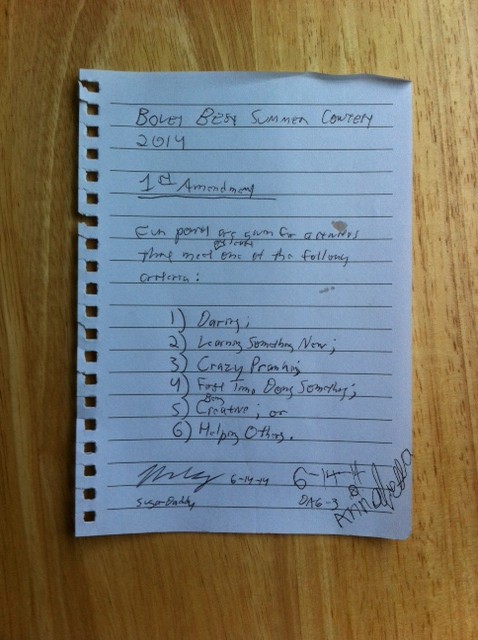 Best Summer Contest
2014
1st Amendment
Fun points are given for activities
that meet at least one of the following
criteria:
1) Daring;
2) Learning Something New;
3) Crazy Pranking
4) First Time Doing Something;
5) Being Creative; or
6) Helping Others.
6-14-14 6-14-14
Sugar Daddy
Annabella